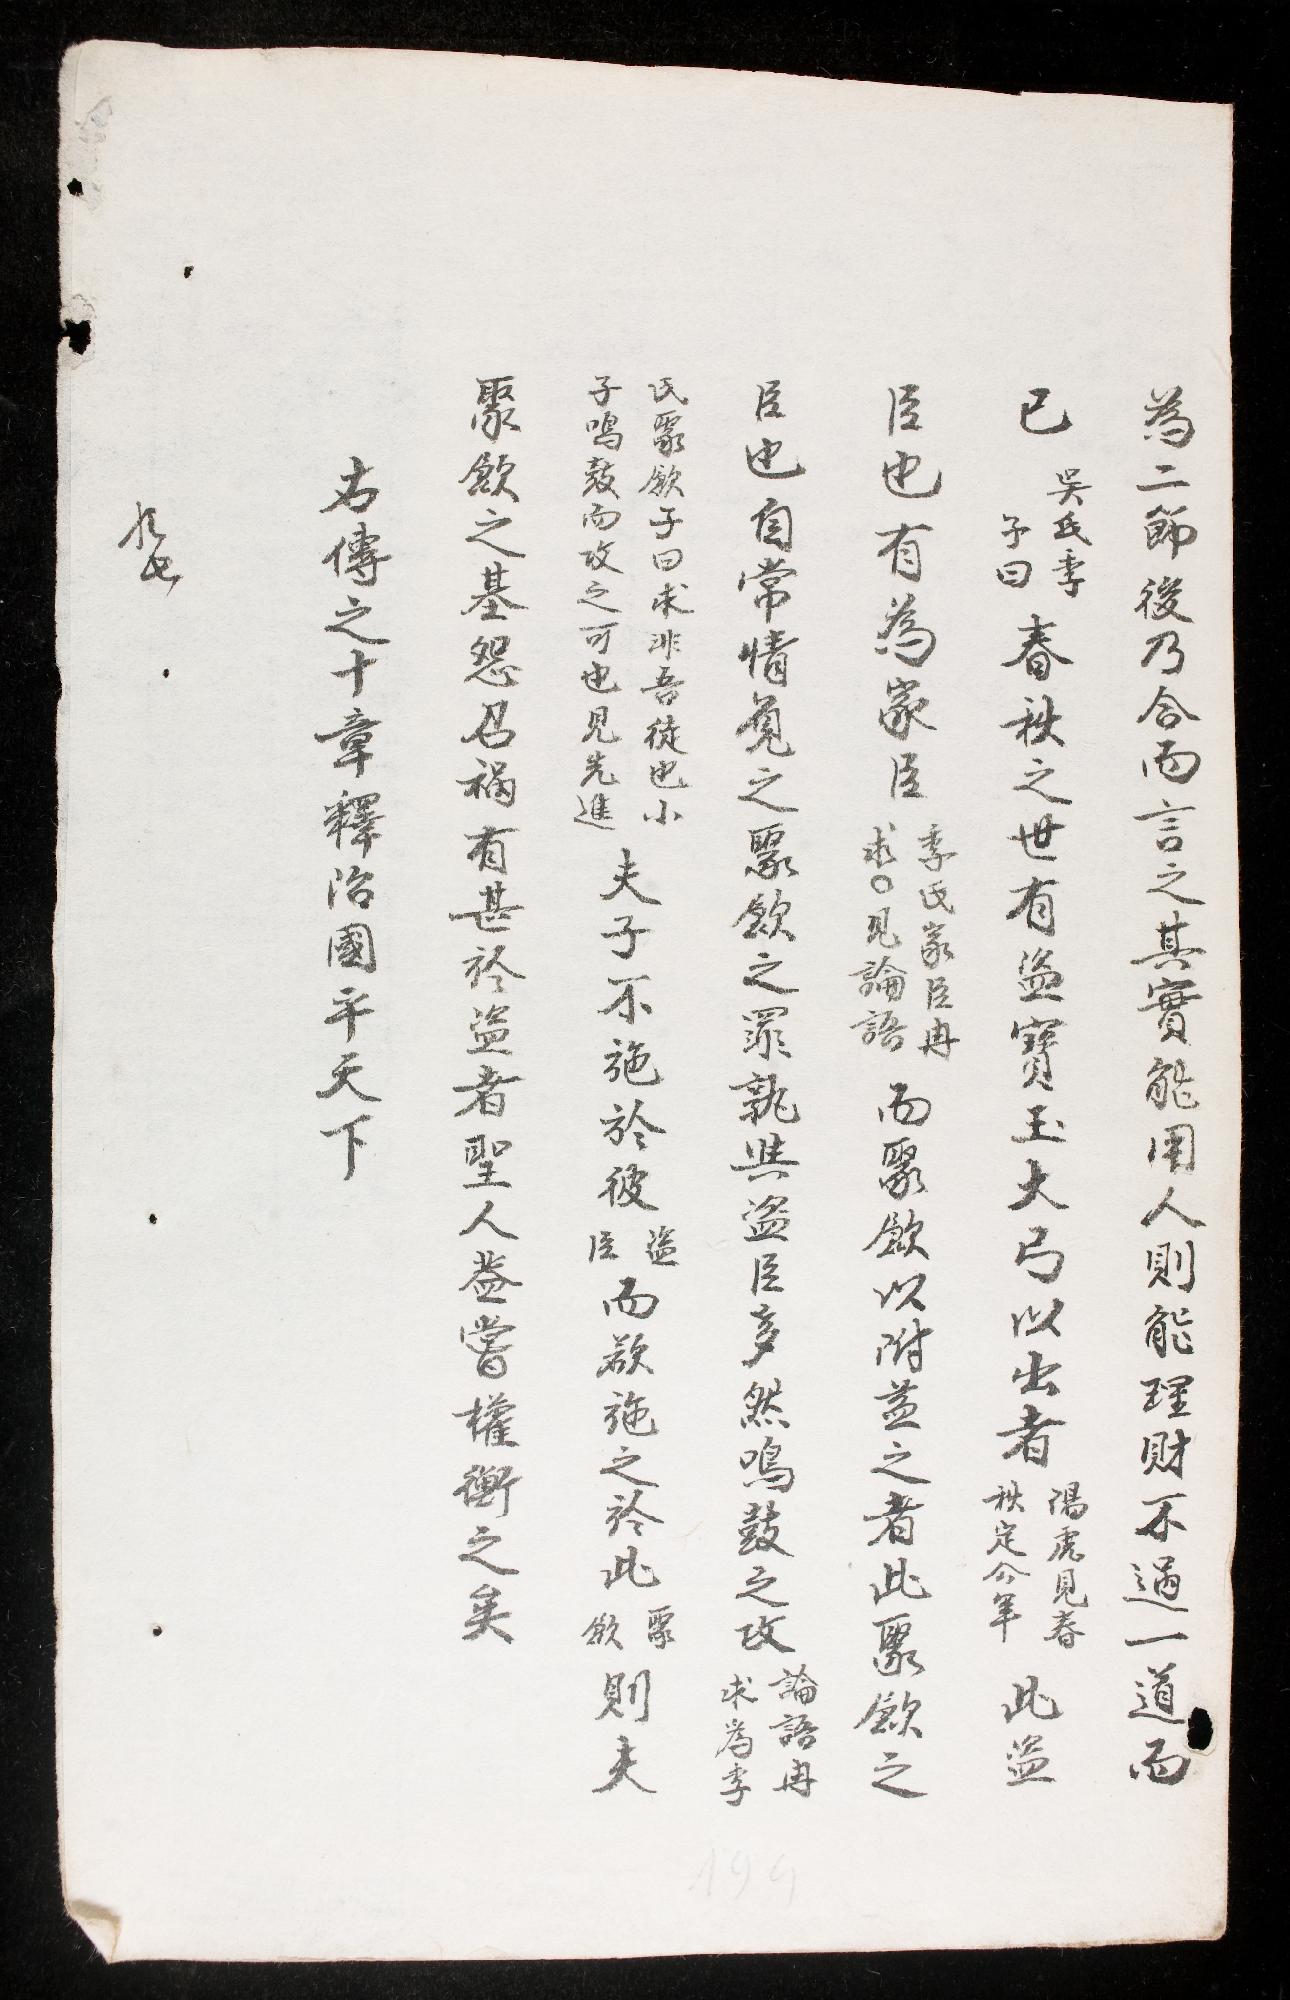 為二節後乃合而言之其實能用人則能理財不過一道而
已
吳氏季
子曰
春秋之世有盜寶玉大弓以出者
陽虎見春
秋定公年
此盜
臣也有為家臣
季氏家臣冉
求○見論語
而聚斂以附益之者此聚斂之
臣也自常情覓之聚斂之罪孰與盜臣多然鳴鼓之攻
論語冉
求為季
氏聚斂子曰求非吾徒也小
子鳴鼓而攻之可也見先進
夫子不施於彼
盜
臣
而欲施之於此
聚
斂
則夫
聚斂之基怨召禍有甚於盜者聖人蓋嘗權衡之矣
右傳之十章釋治國平天下
199